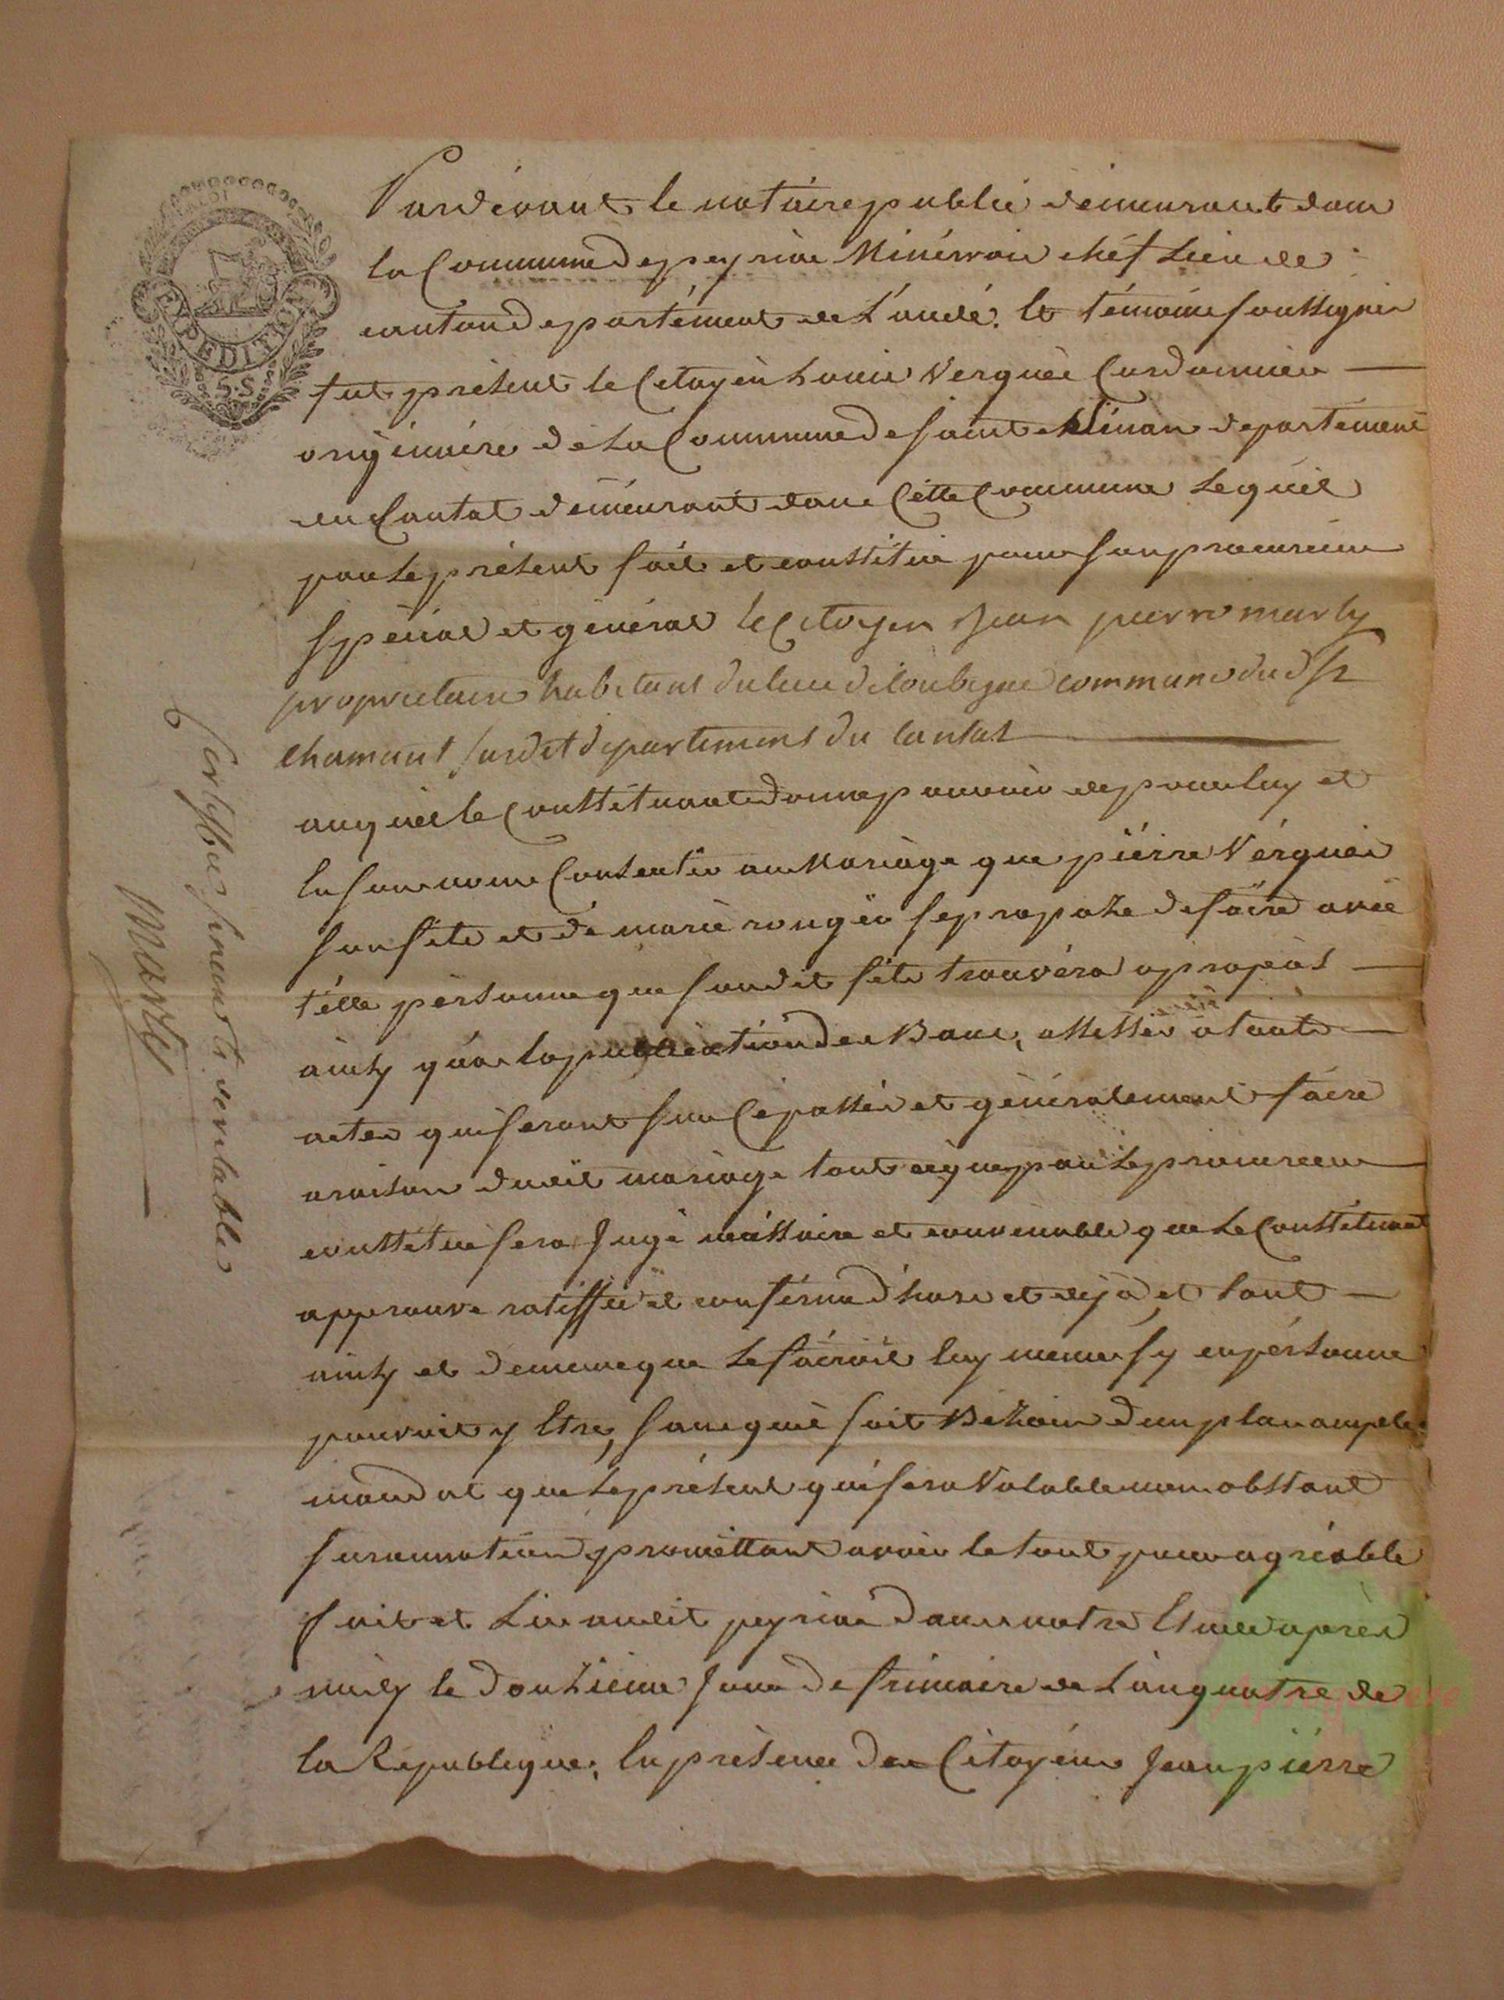 EXPEDITION
5.S
Pardevant le notaire public demeurant dans
la Commune de peyriac Minervois chef Lieu de
canton departement de L'aude. et temoins soussignés
fut présent le Citoyen Louis Verguèi Cordonnier
originaire de La Commune de saint departement
du Cantal demeurant dans Cette Commune Lequel
par Le présent fait et constitue pour son procureur
spécial et général le Citoyen Jean pierre marty
propriétaire habitant du lieu de commune du dit
chamant susdit departement du cantal
auquel le Constituant donne pouvoir de pour luy et
En son nom Consentir au Mariage que piérre Verguèi
son fils et de marie rougèr se propoze de faire avèc
télle pérsonne que son dit fils trouvéra apropòs
ainsy qu'a la publication des Bans, assister a touts
actes qui seront sur Ce passés et généralement faire
araison dudit mariage tout ce que par Le procureur
constitué sera Jugé néssaire et convenable que Le Constituant
approuve ratiffie et confirme d'hors et déjà, et tout
ainsy et de meme que Le fairoit luy meme sy en pérsonne
pouvoit y Etre, sans qu'il soit Bézoin d'un plus ample
mandat que Le présent qui sera Valable nonobstant
surannation promettant avoir le tout pour agréable
fait et Lu audit peyriac dans notre Etude après
midy le douzième Jour de frimaire de L'an quatre de
la République, En présence des Citoyéns Jean piérre
sincer et veritable
Marty